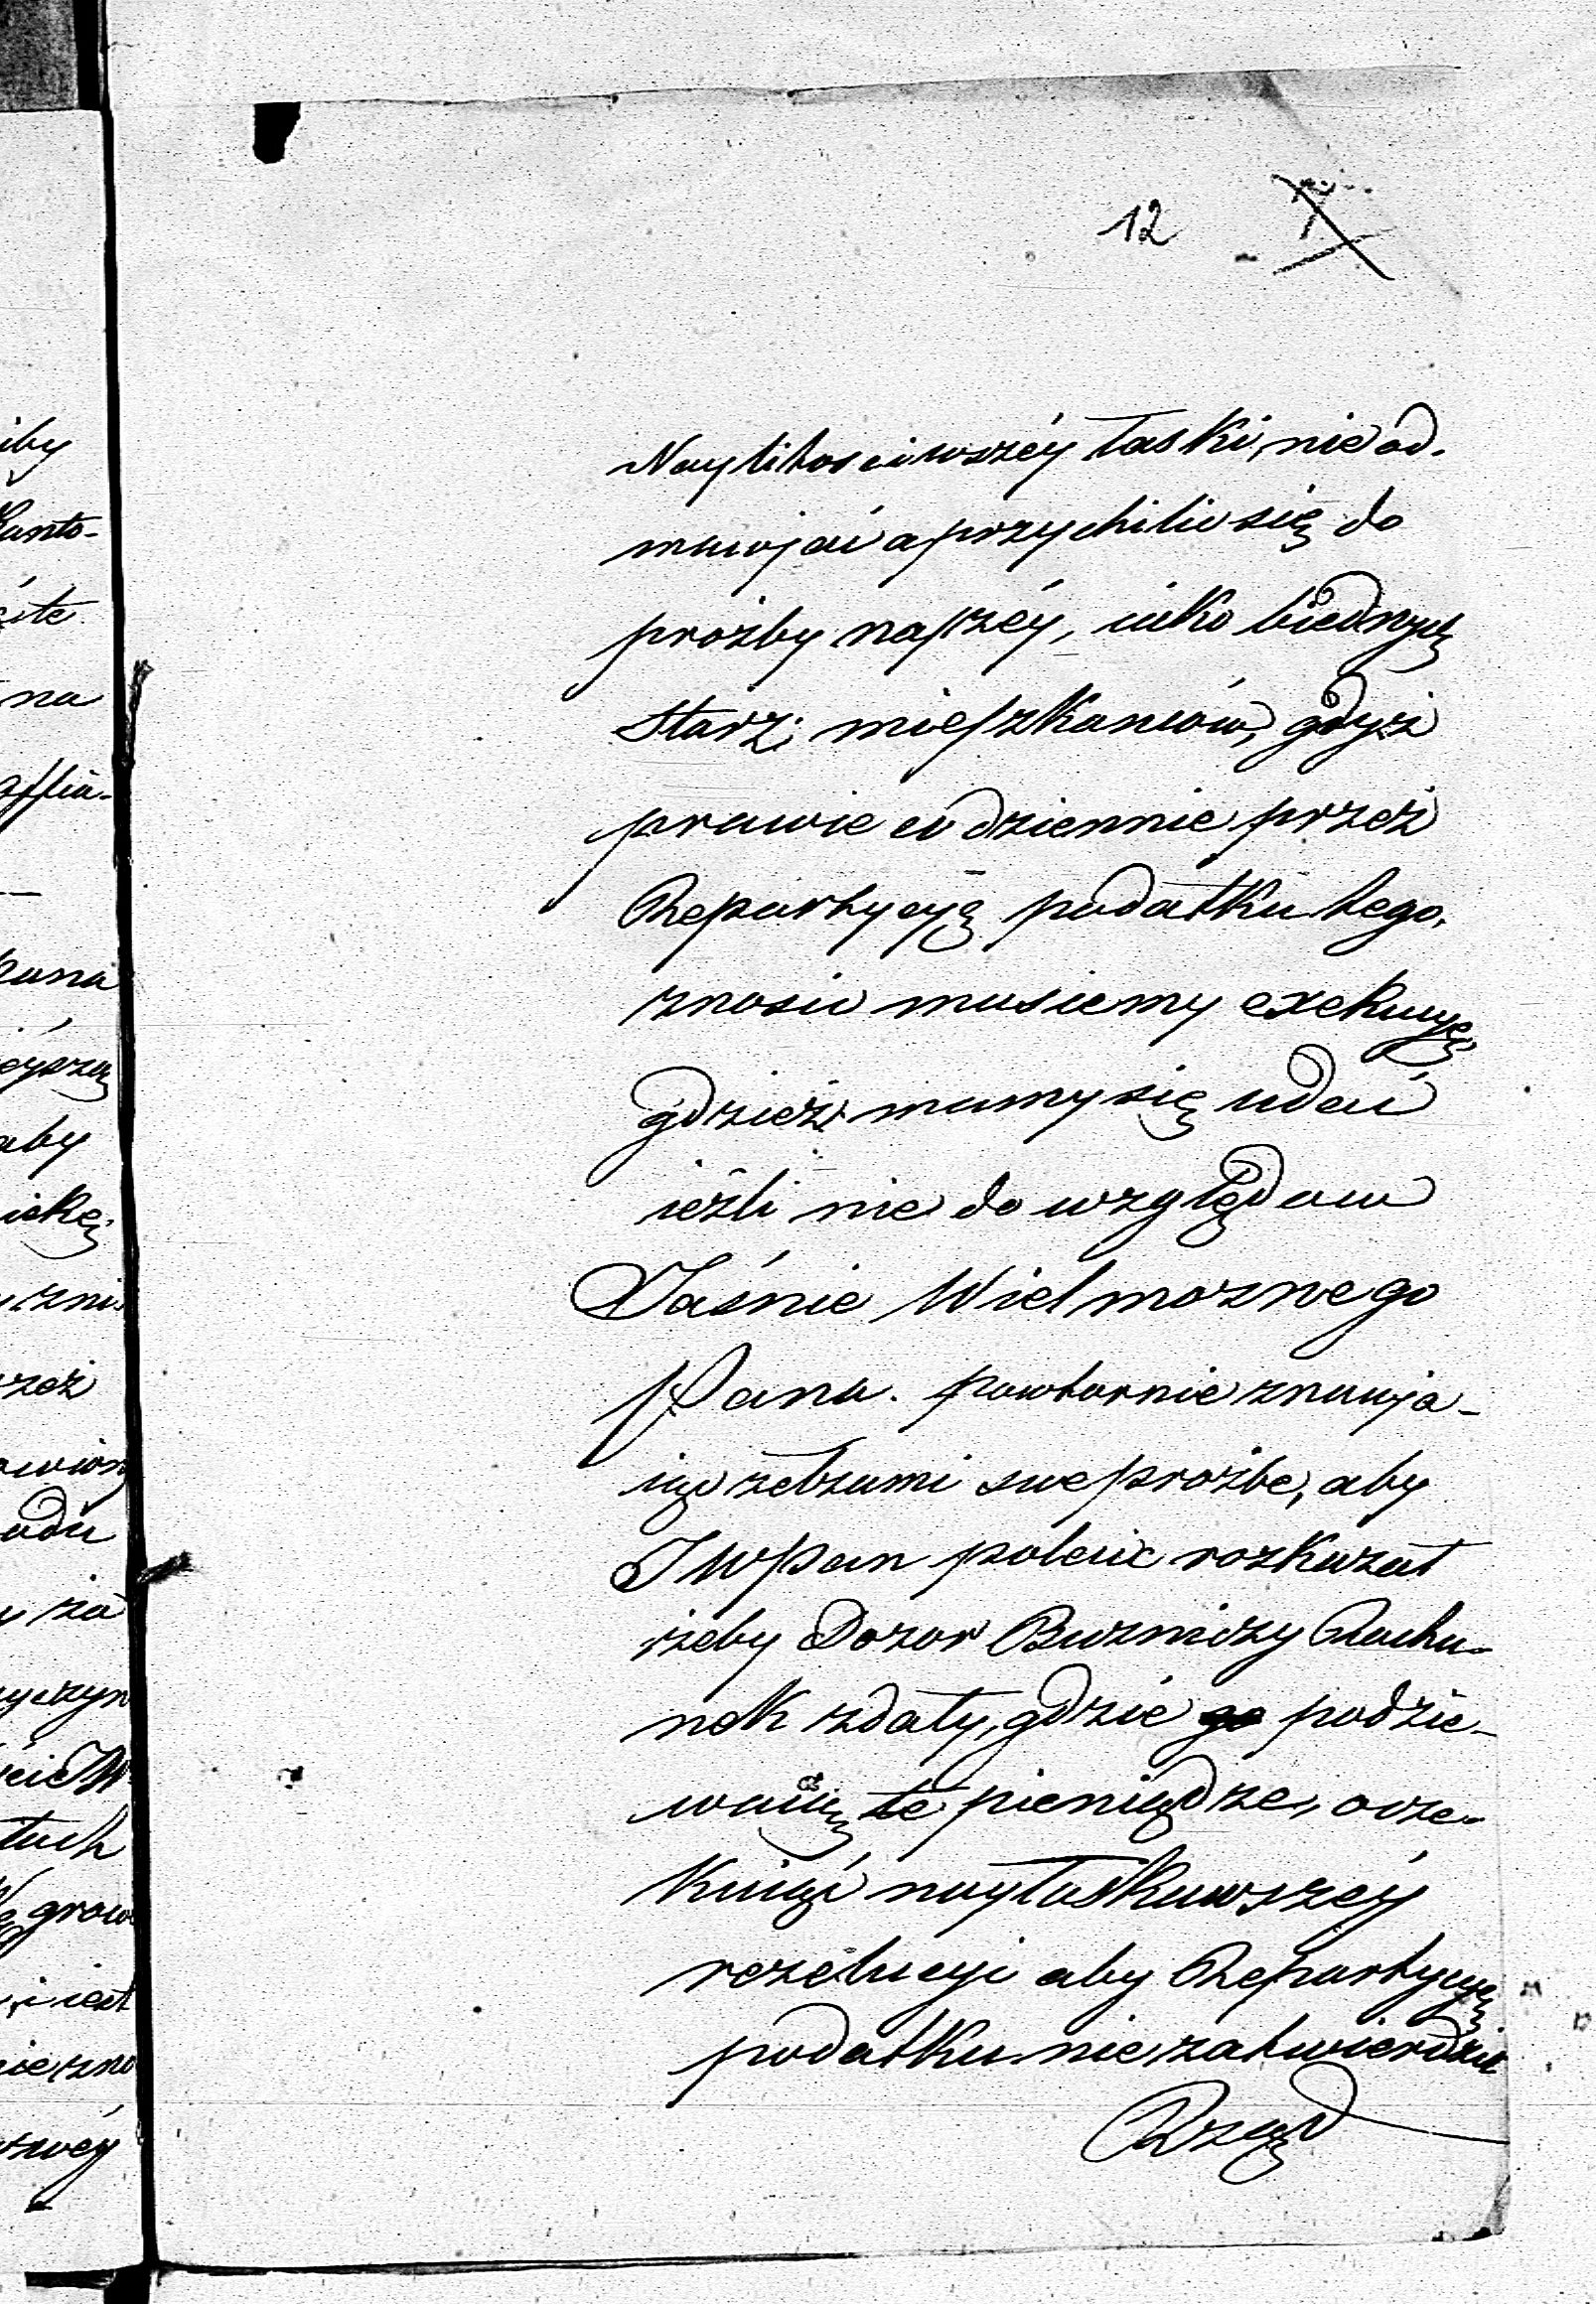 12
Naylitościwszéy łaski, nie od-
mawiać a przychilić się do
prozby naszéy, iako biednych
Starz: mieszkancow, gdyż
prawie codziennie przez
Repartycyą podatku tego,
znosić musiemy exekucyę
gdzież mamy się udać
ieżli nie do względow
Jaśnie Wielmoznego
Pana. powtornie znawia-
ią żebzami swe prozbe, aby
JWPan polecić rozkazał
żeby Dozor Buzniczy Rachu-
nek zdały, gdzie podzie-
waią te pieniądze, ocze-
kuiąc nayłaskawszéy
rezolucyi aby Repartycyę
podatku nie zatwierdził
Rząd
iby
Kanto-
na
aby
zeż
grow
i iest